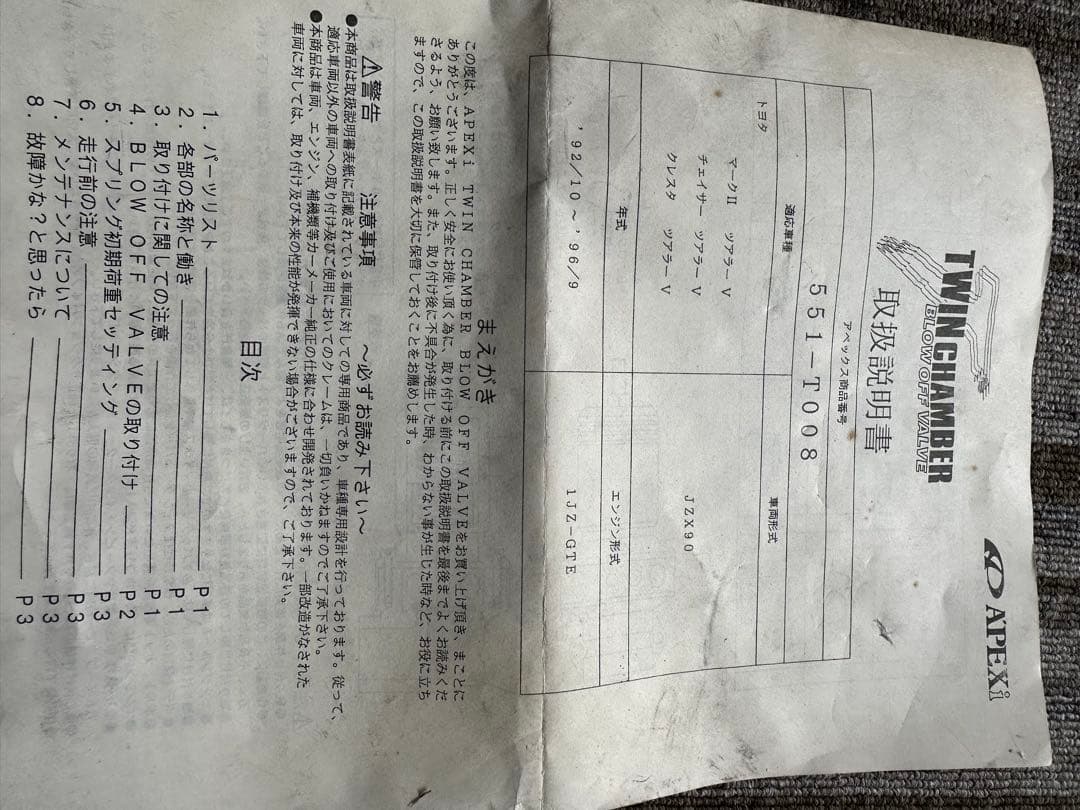 APEXi
TWIN CHAMBER
BLOW OFF VALVE
取扱説明書
アペックス商品番号
551-T008
適応車種
車両形式
トヨタ
マークⅡ ツアラーV
チェイサー ツアラーV
クレスタ ツアラーV
JZX90
年式
エンジン形式
'92/10～'96/9
1JZ-GTE
まえがき
この度は、APEXi TWIN CHAMBER BLOW OFF VALVEをお買い上げ頂き、まことに
ありがとうございます。正しく安全にお使い頂く為に、取り付ける前にこの取扱説明書を最後までよくお読みくだ
さるよう、お願い致します。また、取り付け後に不具合が発生した時、わからない事が生じた時など、お役に立ち
ますので、この取扱説明書を大切に保管しておくことをお薦めします。
⚠警告 注意事項 ～必ずお読み下さい～
●本商品は取扱説明書表紙に記載されている車両に対しての専用商品であり、車種専用設計を行っております。従って、
適応車両以外の車両への取り付け及びご使用においてのクレームは、一切負いかねますのでご了承下さい。
●本商品は車両、エンジン、補機類等カーメーカー純正の仕様に合わせ開発されております。一部改造がなされた
車両に対しては、取り付け及び本来の性能が発揮できない場合がございますので、ご了承下さい。
目次
1. パーツリスト P1
2. 各部の名称と働き P1
3. 取り付けに関しての注意 P1
4. BLOW OFF VALVEの取り付け P2
5. スプリング初期荷重セッティング P3
6. 走行前の注意 P3
7. メンテナンスについて P3
8. 故障かな?と思ったら P3